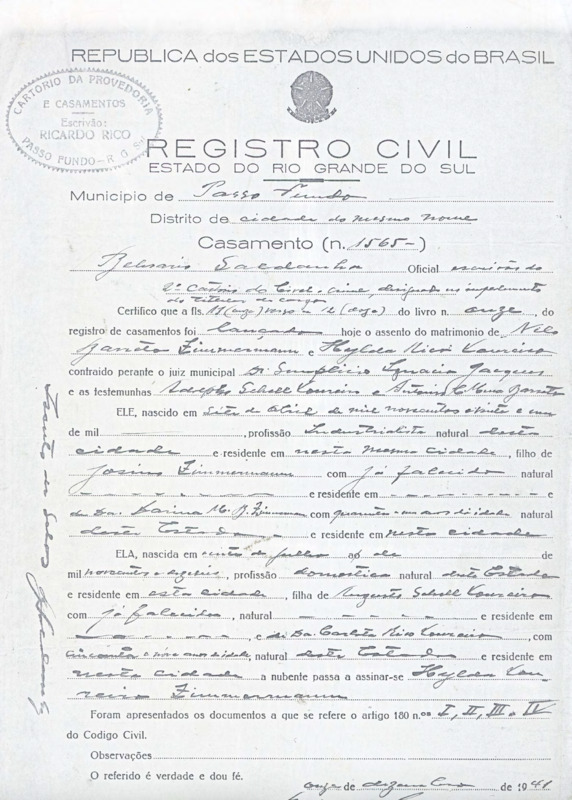 REPUBLICA dos ESTADOS UNIDOS do BRASIL
CARTORIO DA PROVEDORIA
E CASAMENTOS
Escrivão:
RICARDO RICO
PASSO FUNDO - R. G. SUL
REGISTRO CIVIL
ESTADO DO RIO GRANDE DO SUL
Municipio de Passo Fundo
Distrito de cidade do mesmo nome
Casamento (n. 1565-)
Saldanha Oficial escrivão do
2º Cartorio do Civel e crime, designado no impedimento
do titular do cargo
Certifico que a fls. 11 (onze) verso a 12 (doze) do livro n. onze, do
registro de casamentos foi lançado hoje o assento do matrimonio de Nilo
Zimmermann e Hylda Rico Loureiro
contraído perante o juiz municipal Dr. Simplicio Ignacio Jacques
e as testemunhas Adolpho Schell Loureiro e Antonio
ELE, nascido em sete de abril de mil novecentos e vinte e um
de mil , profissão Industrialista natural desta
cidade e residente em nesta mesma cidade, filho de
Zimmermann com já falecido natural
e residente em e
de Da. Zimmermann com quarenta anos de idade natural
deste Estado e residente em nesta cidade
ELA, nascida em de julho de de
mil novecentos e dezeseis, profissão domestica natural deste Estado
e residente em esta cidade, filha de Augusto Schell Loureiro
com já falecido, natural e residente em
, e de Da. Rico Loureiro, com
cincoenta e nove anos de idade, natural deste Estado e residente em
nesta cidade a nubente passa a assinar-se Hylda Lou-
reiro Zimmermann
Foram apresentados os documentos a que se refere o artigo 180 n.os I, II, III e IV
do Codigo Civil.
Observações
O referido é verdade e dou fé.
onze de dezembro de 1941
Isento de Selos